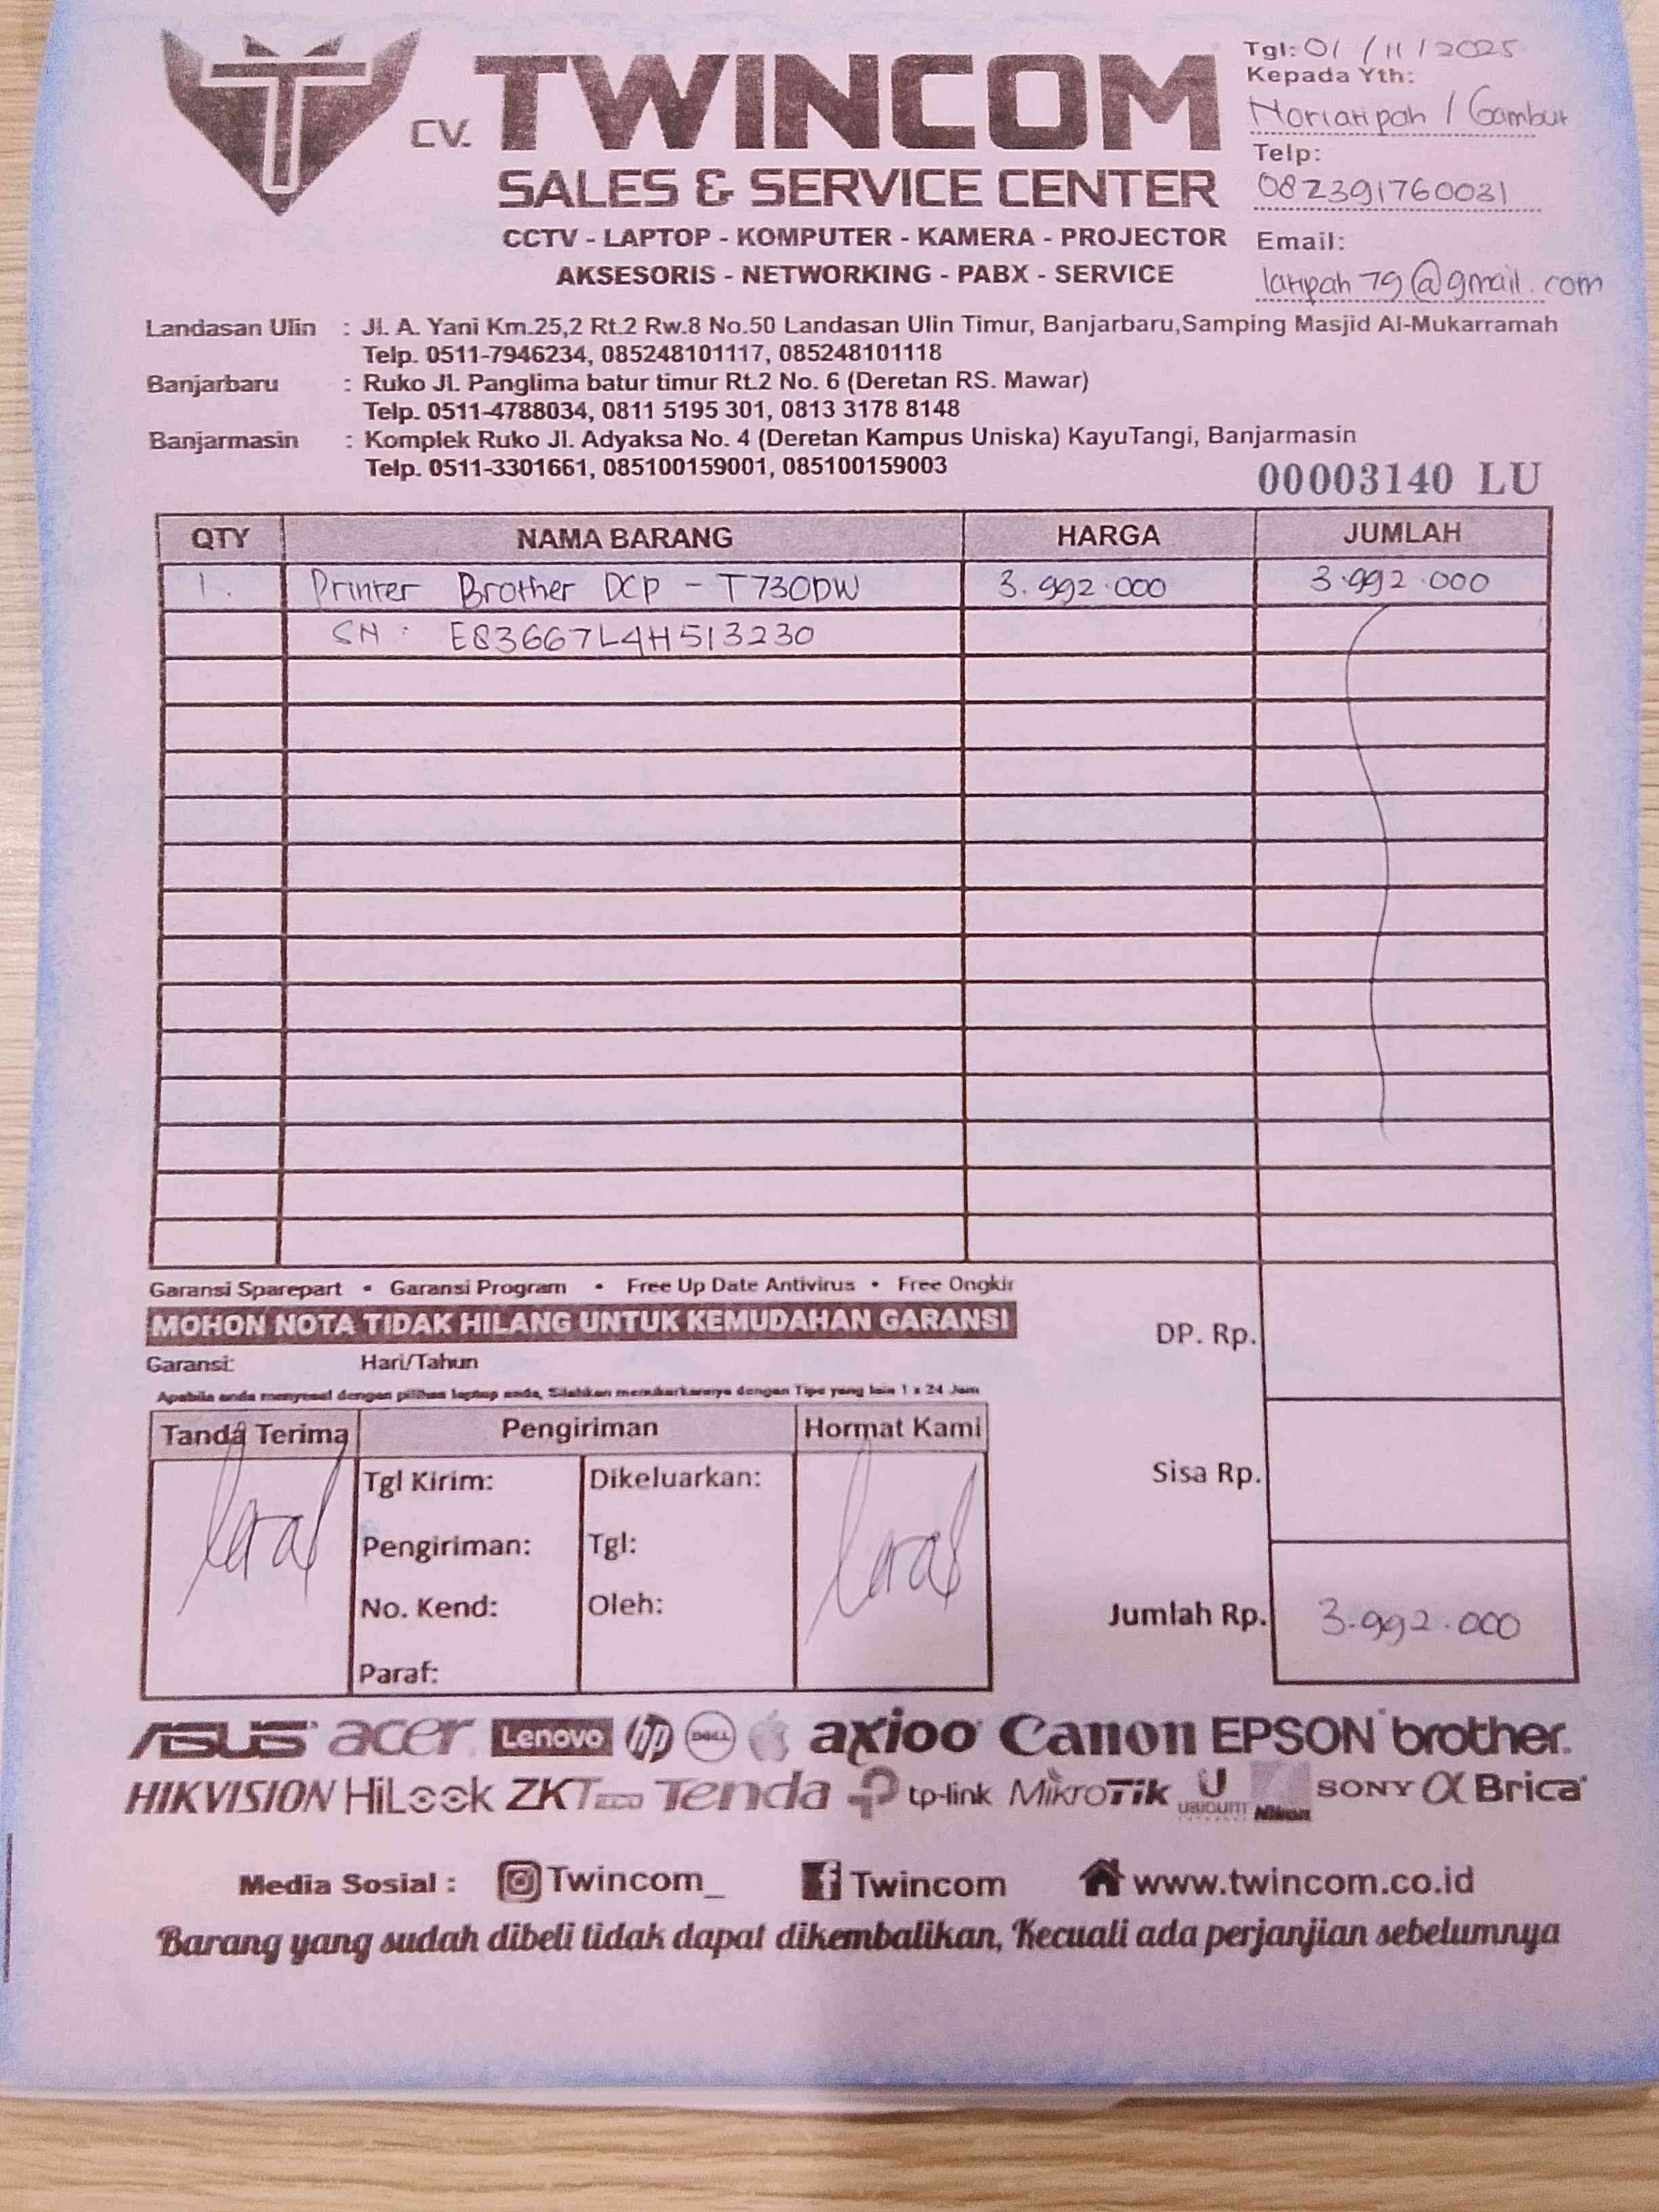 CV. TWINCOM
SALES & SERVICE CENTER
CCTV - LAPTOP - KOMPUTER - KAMERA - PROJECTOR
AKSESORIS - NETWORKING - PABX - SERVICE
Tgl: 01 / 11 / 2025
Kepada Yth:
Noriatipah / Gambut
Telp:
082391760031
Email:
latipah79@gmail.com
Landasan Ulin : Jl. A. Yani Km.25,2 Rt.2 Rw.8 No.50 Landasan Ulin Timur, Banjarbaru,Samping Masjid Al-Mukarramah
Telp. 0511-7946234, 085248101117, 085248101118
Banjarbaru : Ruko Jl. Panglima batur timur Rt.2 No. 6 (Deretan RS. Mawar)
Telp. 0511-4788034, 0811 5195 301, 0813 3178 8148
Banjarmasin : Komplek Ruko Jl. Adyaksa No. 4 (Deretan Kampus Uniska) KayuTangi, Banjarmasin
Telp. 0511-3301661, 085100159001, 085100159003
00003140 LU
QTY NAMA BARANG HARGA JUMLAH
1. Printer Brother DCP - T730DW 3.992.000 3.992.000
SN : E83667L4H513230
Garansi Sparepart • Garansi Program • Free Up Date Antivirus • Free Ongkir
MOHON NOTA TIDAK HILANG UNTUK KEMUDAHAN GARANSI
Garansi: Hari/Tahun
Apabila anda menyesal dengan pilihan laptop anda, Silahkan menukarkannya dengan Tipe yang lain 1 x 24 Jam
DP. Rp.
Sisa Rp.
Jumlah Rp. 3.992.000
Tanda Terima Pengiriman Hormat Kami
Tgl Kirim: Dikeluarkan:
Pengiriman: Tgl:
No. Kend: Oleh:
Paraf:
ASUS acer Lenovo hp DELL axioo Canon EPSON brother
HIKVISION HiLook ZKTeco Tenda tp-link MikroTik U UBIQUITI Nikon SONY α Brica
Media Sosial : Twincom_ Twincom www.twincom.co.id
Barang yang sudah dibeli tidak dapat dikembalikan, Kecuali ada perjanjian sebelumnya